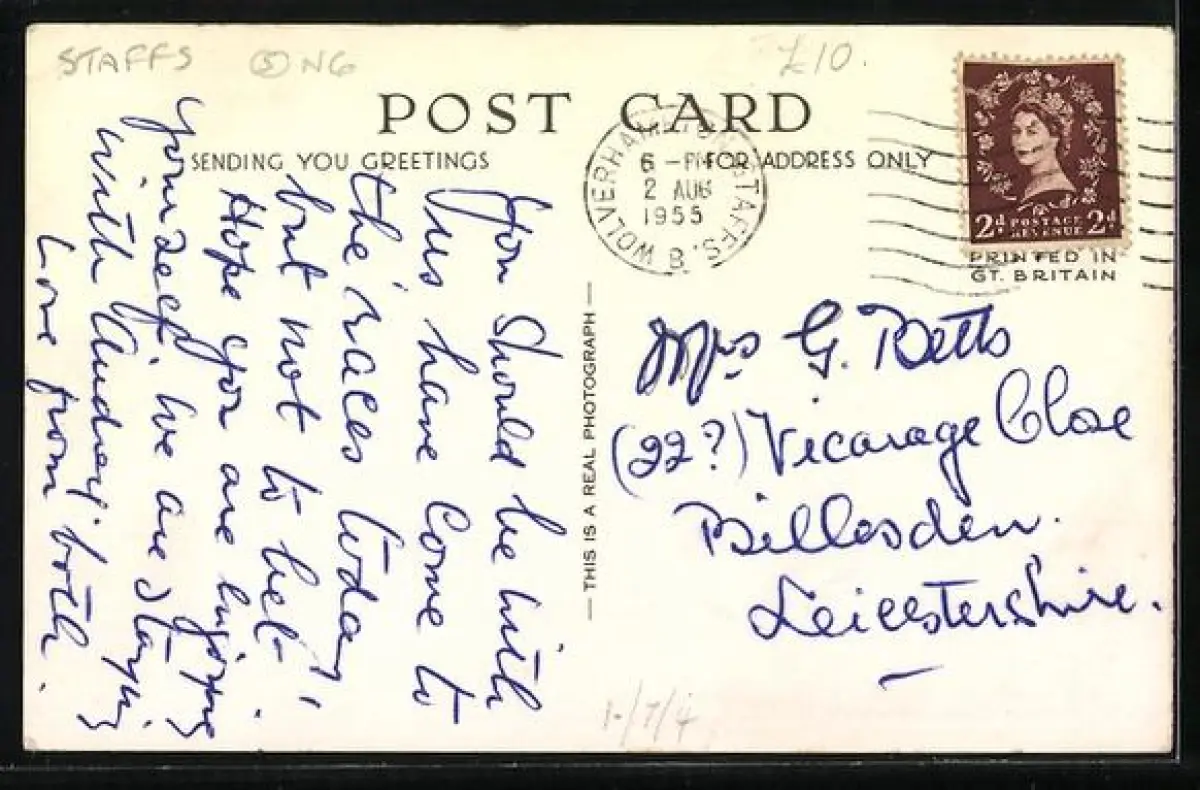 STAFFS
£10.
POST CARD
SENDING YOU GREETINGS
FOR ADDRESS ONLY
WOLVERHAMPTON STAFFS. B
6 - PM
2 AUG
1955
2d POSTAGE REVENUE 2d
PRINTED IN
GT. BRITAIN
You Should be with
us have Come to
the races today,
but not to bet.
Hope you are enjoying
yourself. We are staying
with Audrey.
Love from both.
— THIS IS A REAL PHOTOGRAPH —
Mrs G. Betts
(22?) Vicarage Close
Billesden.
Leicestershire.
1-/7/4